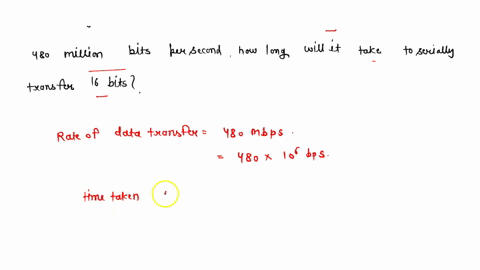 480 million bits per second, how long will it take to serially
transfer 16 bits?
Rate of data transfer = 480 mbps.
= 480 × 10⁶ bps.
time taken